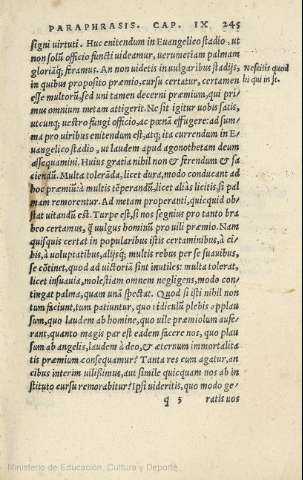 PARAPHRASIS. CAP. IX. 245
signi virtuti. Huc enitendum in Euangelico stadio, ut
non solũ officio functi uideamur, uerumeriam palmam
gloriaq; feramus. An non uidetis in uulgaribus stadijs,
Nescitis quod
in quibus proposito præmio, cursu certatur, certamen
hi qui in st.
esse multorũ, sed uni tamen decerni præmium, qui pri-
mus omnium metam attigerit. Ne sit igitur uobis satis,
utcunq; uestro fungi officio, ac pœnã effugere: ad sum
ma pro uiribus enitendum est, atq; ita currendum in Eu-
angelico stadio, ut laudem apud agonothetam deum
assequamini. Huius gratia nihil non & ferendum & fa
ciendũ. Multa tolerãda, licet dura, modo conducant ad
hoc præmiũ: à multis tẽperandũ, licet aliàs licitis, si pal
mam remorentur. Ad metam properanti, quicquid ob
stat uitandũ est. Turpe est, si nos segnius pro tanto bra
beo certamus, q̃ uulgus hominũ pro uili præmio. Nam
quisquis certat in popularibus istis certaminibus, à ci-
bis, à uoluptatibus, alijsq; multis rebus per se suauibus,
se cõtinet, quod ad uictoriã sint inutiles: multa tolerat,
licet insuauia, molestiam omnem negligens, modo con-
tingat palma, quam unã spectat. Quod si isti nihil non
tum faciunt, tum patiuntur, quo ridiculũ plebis applau
sum, quo laudem ab homine, quo uile præmiolum aufe-
rant, quanto magis par est eadem facere nos, quo plau
sum ab angelis, laudem à deo, & æternum immortalita
tis præmium consequamur? Tanta res cum agatur, an
cibus interim uilissimus, aut simile quicquam nos ab in
stituto cursu remorabitur? Ipsi uideritis, quo modo ge-
q 5 ratis uos
Ministerio de Educación, Cultura y Deporte